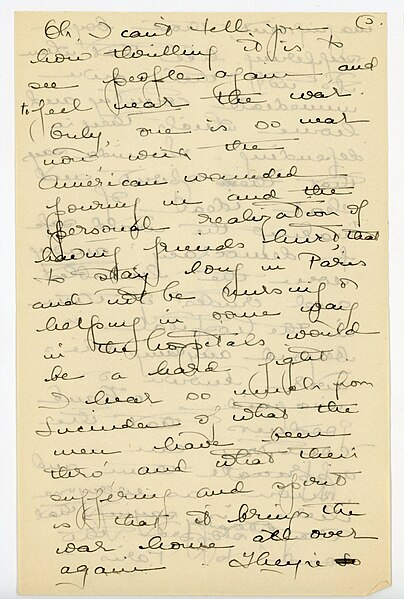 Oh, I can't tell you
how thrilling it is to
see people again and
to feel near the war.
Only one is so near
now, with the
American wounded
pouring in and the
personal realization of
having friends hurt, that
to stay long in Paris
and not be nursing or
helping in some way
in the hospitals would
be a hard fight
I hear so much from
Lucinda of what the
men have been
thro' and what their
suffering and spirit
is that it brings the
war home all over
again. They're so